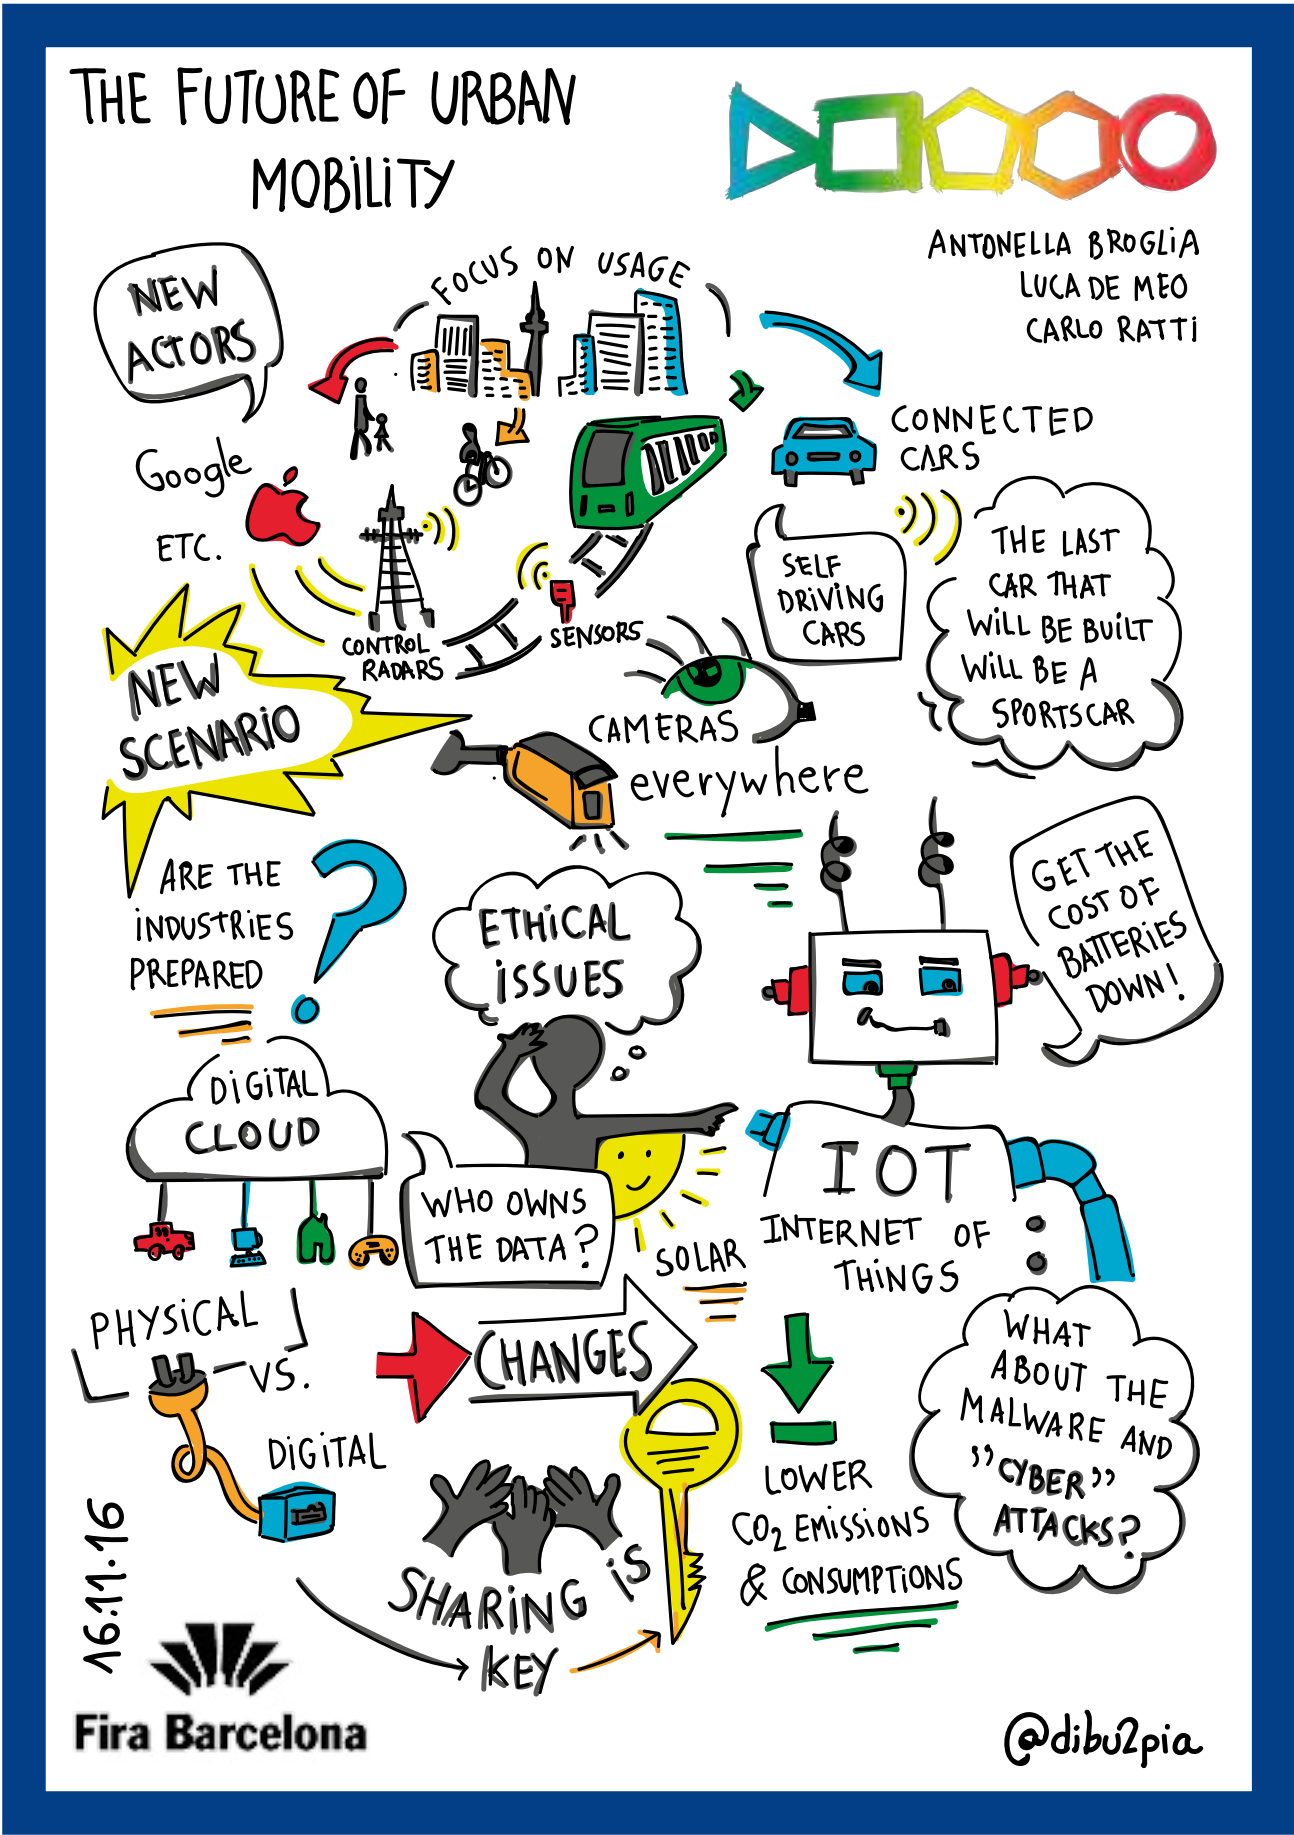 THE FUTURE OF URBAN
MOBILITY
ANTONELLA BROGLIA
LUCA DE MEO
CARLO RATTI
NEW
ACTORS
Google
ETC.
FOCUS ON USAGE
CONNECTED
CARS
SELF
DRIVING
CARS
THE LAST
CAR THAT
WILL BE BUILT
WILL BE A
SPORTSCAR
CONTROL
RADARS
SENSORS
NEW
SCENARIO
CAMERAS
everywhere
ARE THE
INDUSTRIES
PREPARED
?
ETHICAL
ISSUES
GET THE
COST OF
BATTERIES
DOWN!
DIGITAL
CLOUD
WHO OWNS
THE DATA?
SOLAR
IOT
INTERNET OF
THINGS
PHYSICAL
VS.
DIGITAL
CHANGES
LOWER
CO2 EMISSIONS
& CONSUMPTIONS
WHAT
ABOUT THE
MALWARE AND
"CYBER"
ATTACKS?
SHARING IS
KEY
16.11.16
Fira Barcelona
@dibu2pia